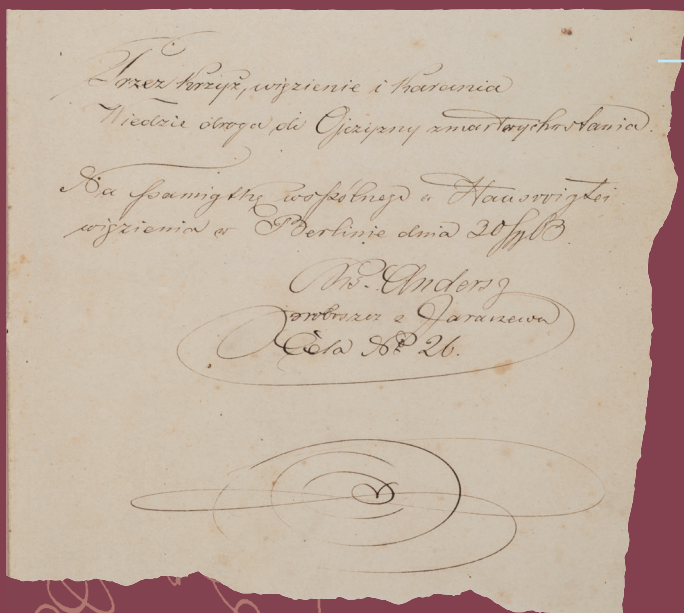 Przez krzyż, więzienie i karania
Wiedzie droga do Ojczyzny zmartwychwstania.
Na pamiątkę wspólnego w Hausvoigtei
więzienia w Berlinie dnia 20 63
Ks. Andersz
proboszcz z Jaraczewa
Cela No 26.